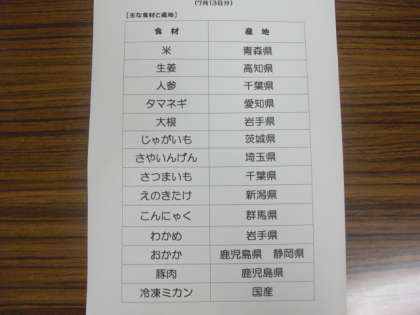 (7月13日分)
[主な食材と産地]
食 材 産 地
米 青森県
生姜 高知県
人参 千葉県
タマネギ 愛知県
大根 岩手県
じゃがいも 茨城県
さやいんげん 埼玉県
さつまいも 千葉県
えのきたけ 新潟県
こんにゃく 群馬県
わかめ 岩手県
おかか 鹿児島県 静岡県
豚肉 鹿児島県
冷凍ミカン 国産